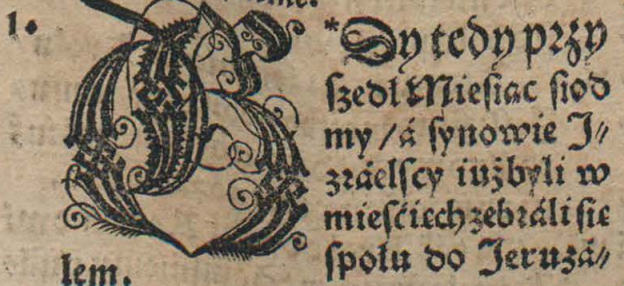 1.
G*Dy tedy przy
szedł Miesiąc siod
my / á synowie J⸗
zráelscy iuż byli w
mieśćiech zebráli się
społu do Jeruzá⸗
lem.